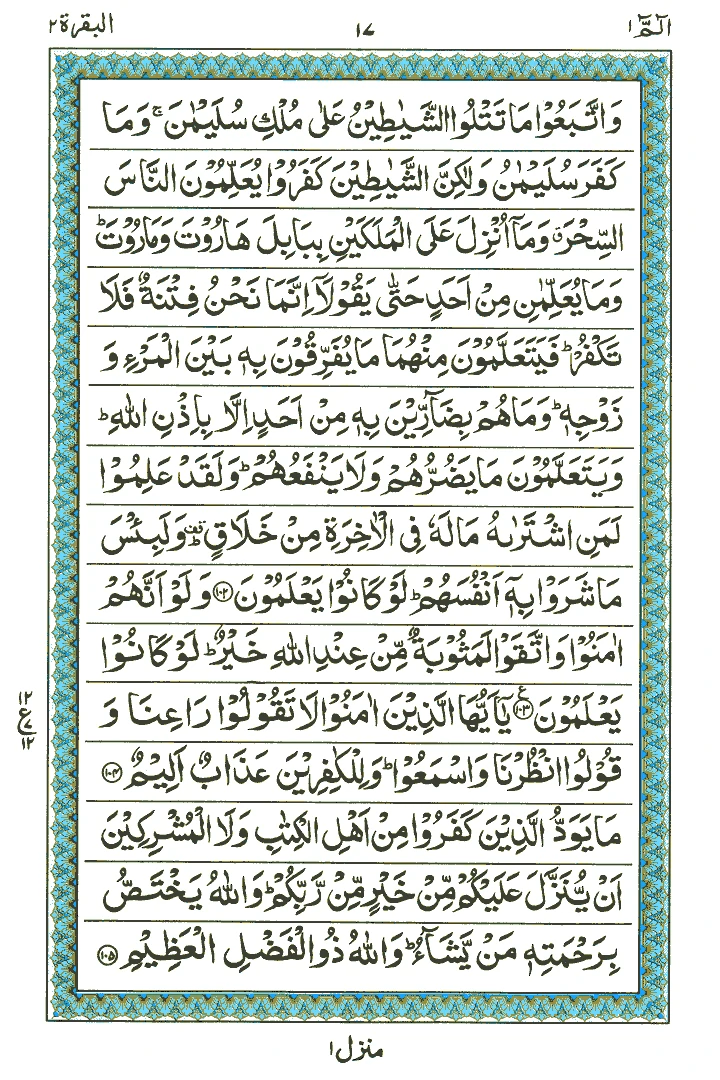 الٓمّٓ ١ ١٧ البقرة ٢
وَاتَّبَعُوْا مَا تَتْلُوا الشَّيٰطِيْنُ عَلٰى مُلْكِ سُلَيْمٰنَ ۚ وَمَا
كَفَرَ سُلَيْمٰنُ وَلٰكِنَّ الشَّيٰطِيْنَ كَفَرُوْا يُعَلِّمُوْنَ النَّاسَ
السِّحْرَ ۗ وَمَآ اُنْزِلَ عَلَى الْمَلَكَيْنِ بِبَابِلَ هَارُوْتَ وَمَارُوْتَ ؕ
وَمَا يُعَلِّمٰنِ مِنْ اَحَدٍ حَتّٰى يَقُوْلَآ اِنَّمَا نَحْنُ فِتْنَةٌ فَلَا
تَكْفُرْ ؕ فَيَتَعَلَّمُوْنَ مِنْهُمَا مَا يُفَرِّقُوْنَ بِهٖ بَيْنَ الْمَرْءِ وَ
زَوْجِهٖ ؕ وَمَا هُمْ بِضَآرِّيْنَ بِهٖ مِنْ اَحَدٍ اِلَّا بِاِذْنِ اللّٰهِ ؕ
وَيَتَعَلَّمُوْنَ مَا يَضُرُّهُمْ وَلَا يَنْفَعُهُمْ ؕ وَلَقَدْ عَلِمُوْا
لَمَنِ اشْتَرٰىهُ مَا لَهٗ فِى الْاٰخِرَةِ مِنْ خَلَاقٍ ۛ وَلَبِئْسَ
مَا شَرَوْا بِهٖٓ اَنْفُسَهُمْ ؕ لَوْ كَانُوْا يَعْلَمُوْنَ ﴿١٠٢﴾ وَلَوْ اَنَّهُمْ
اٰمَنُوْا وَاتَّقَوْا لَمَثُوْبَةٌ مِّنْ عِنْدِ اللّٰهِ خَيْرٌ ؕ لَوْ كَانُوْا
يَعْلَمُوْنَ ﴿١٠٣﴾ ع يٰٓاَيُّهَا الَّذِيْنَ اٰمَنُوْا لَا تَقُوْلُوْا رَاعِنَا وَ
١٢ ع ٧ ١٢
قُوْلُوا انْظُرْنَا وَاسْمَعُوْا ؕ وَلِلْكٰفِرِيْنَ عَذَابٌ اَلِيْمٌ ﴿١٠٤﴾
مَا يَوَدُّ الَّذِيْنَ كَفَرُوْا مِنْ اَهْلِ الْكِتٰبِ وَلَا الْمُشْرِكِيْنَ
اَنْ يُّنَزَّلَ عَلَيْكُمْ مِّنْ خَيْرٍ مِّنْ رَّبِّكُمْ ؕ وَاللّٰهُ يَخْتَصُّ
بِرَحْمَتِهٖ مَنْ يَّشَآءُ ؕ وَاللّٰهُ ذُو الْفَضْلِ الْعَظِيْمِ ﴿١٠٥﴾
منزل ١